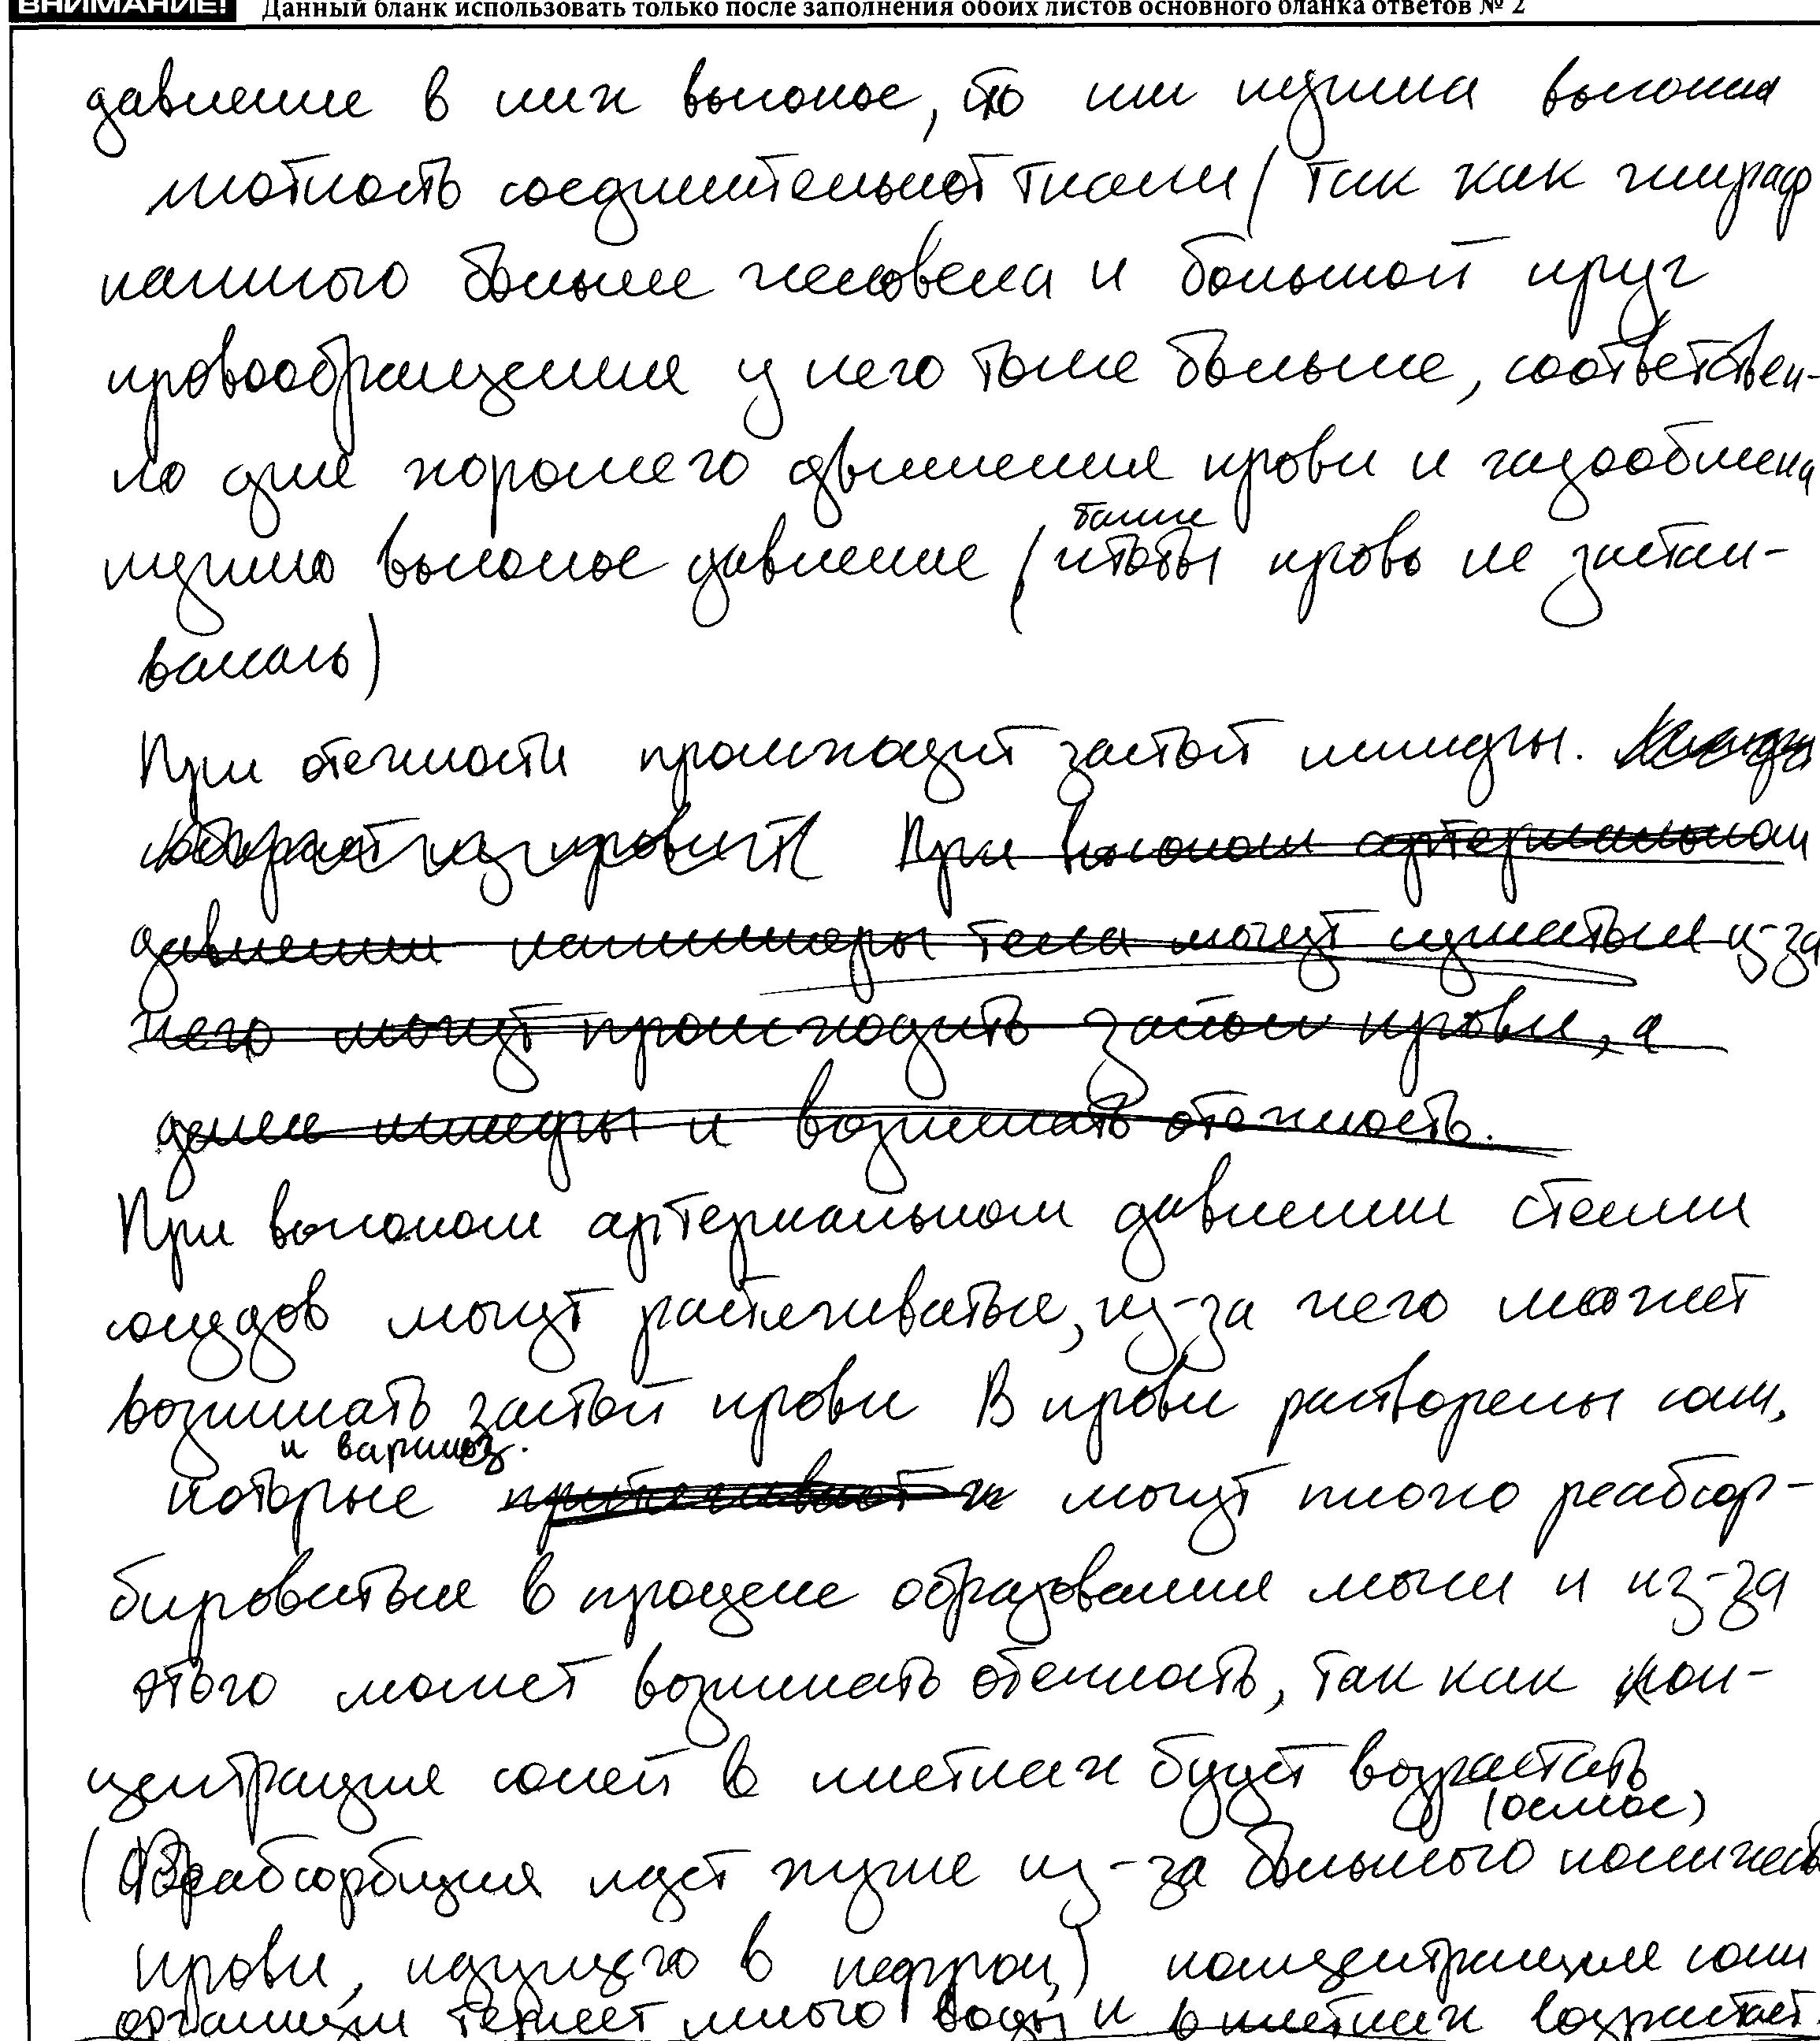 ВНИМАНИЕ! Данный бланк использовать только после заполнения обоих листов основного бланка ответов № 2
давление в них высокое, то им нужна высокая
плотность соединительной ткани (так как жираф
намного больше человека и большой круг
кровообращения у него тоже больше, соответствен-
но для хорошего движения крови и газообмена
нужно высокое давление (чтобы кровь не застаи-
также
валась)
При отечности происходит застой лимфы.
При высоком артериальном
давлении капилляры тела могут сужаться из-за
чего могут происходить застои крови, а
далее лимфы и возникать отечность.
При высоком артериальном давлении стенки
сосудов могут растягиваться, из-за чего может
возникать застой крови В крови растворены соли,
и варикоз.
которые притягивают и могут плохо реабсор-
бироваться в процессе образования мочи и из-за
этого может возникать отечность, так как кон-
центрация солей в клетках будет возрастать
(осмос)
(Реабсорбция идет хуже из-за большого количеств
крови, идущего в нефрон) концентрация соли
организм теряет много воды и в клетках возрастает